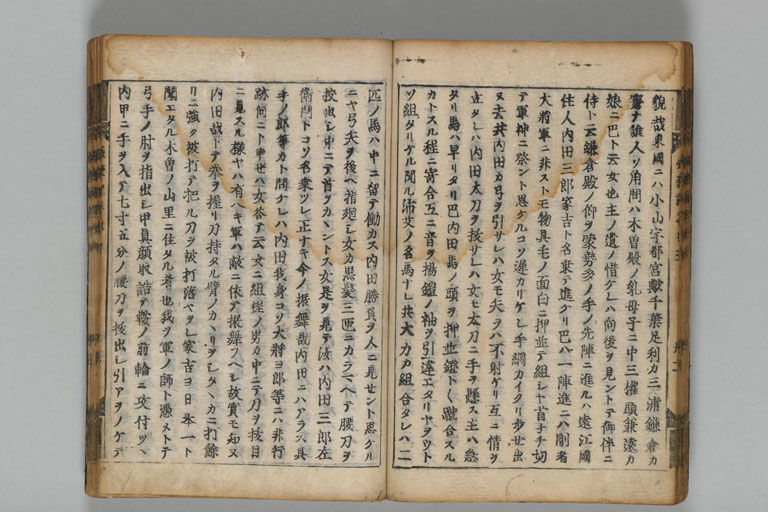 貌哉東國ニハ小山宇都宮歟千葉足利カ三浦鎌倉カ
審ナ誰人ソ角問ハ木曽殿ノ乳母子ニ中三權頭兼遠カ
娘ニ巴ト云女也主ノ遣ノ惜ケレハ向後ヲ見ントテ御伴ニ
侍ト云鎌倉殿ノ仰ヲ蒙勢多ノ手ノ先陣ニ進ルハ遠江國
住人内田三郎家吉ト名乗テ進ケリ巴ハ一陣進ニハ剛者
大將軍ニ非ストモ物具毛ノ面白ニ押並テ組シヤ首子チ切
テ軍神ニ祭ント思ケルコソ遅カリケレ手綱カイクリ歩セ出
ヌ去共内田カ弓ヲ引サレハ女モ矢ヲハ不射ケリ互ニ情ヲ
立タレハ内田太刀ヲ抜サレハ女モ太刀ニ手ヲ懸ス主ハ急
タリ馬ハ早リタリ巴内田馬ノ頭ヲ押並鐙ト〱蹴合スル
カトスル程ニ寄合互ニ音ヲ揚鎧ノ袖ヲ引違エタリヤヲウト
ソ組タリケル聞ル沛艾ノ名馬ナレ共大力カ組合タレハ二
匹ノ馬ハ中ニ留テ働カス内田勝負ヲ人ニ見セント思ケル
ニヤ弓矢ヲ後ヘ指廻シ女カ黒髪三匝ニカラミヘテ腰刀ヲ
抜出シ中ニテ首ヲカヽントス女是ヲ見テ汝ハ内田三郎左
衛門トコソ名乗ツレ正ナキ今ノ振舞哉内田ニハアラス其
手ノ郎等カト問ケレハ内田我身コソ大將ヨ郎等ニハ非行
跡何ニト申セハ女答テ云女ニ組程ノ男カ中ニテ刀ヲ抜目
ニ見スル様ヤハ有ヘキ軍ハ敵ニ依テ振舞フヘシ故實モ知ヌ
内田哉トテ拳ヲ握リ刀持タル臂ノカヽリヲシタヽカニ打餘
リニ強ク被打テ把ル刀ヲ被打落ヤヲレ家吉ヨ日本一ト
聞エタル木曽ノ山里ニ住タル者也我ヲ軍ノ師ト憑メトテ
弓手ノ肘ヲ指出シ甲真顔取詰テ鞍ノ前輪ニ攻付ツヽ
内甲ニ手ヲ入テ七寸五分ノ腰刀ヲ抜出シ引アヲノケテ